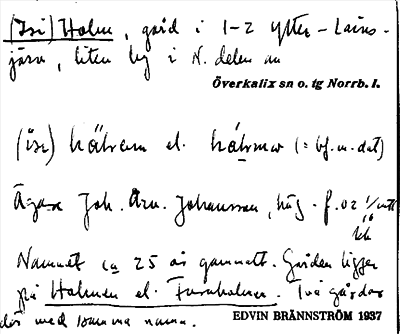 (Isi) Holm, gård i 1-2 Ytter-Lains-
järv, liten by i N. delen av
Överkalix sn o. tg Norrb. l.
(isi) hålrem el. (= bf. n. dat)
Ägare Joh. Arv. Johansson, häg. f. 02
Namnet ca 25 år gammalt. Gården ligger
på Holmen el. Furuholmen. Två gårdar
där med samma namn. EDVIN BRÄNNSTRÖM 1937